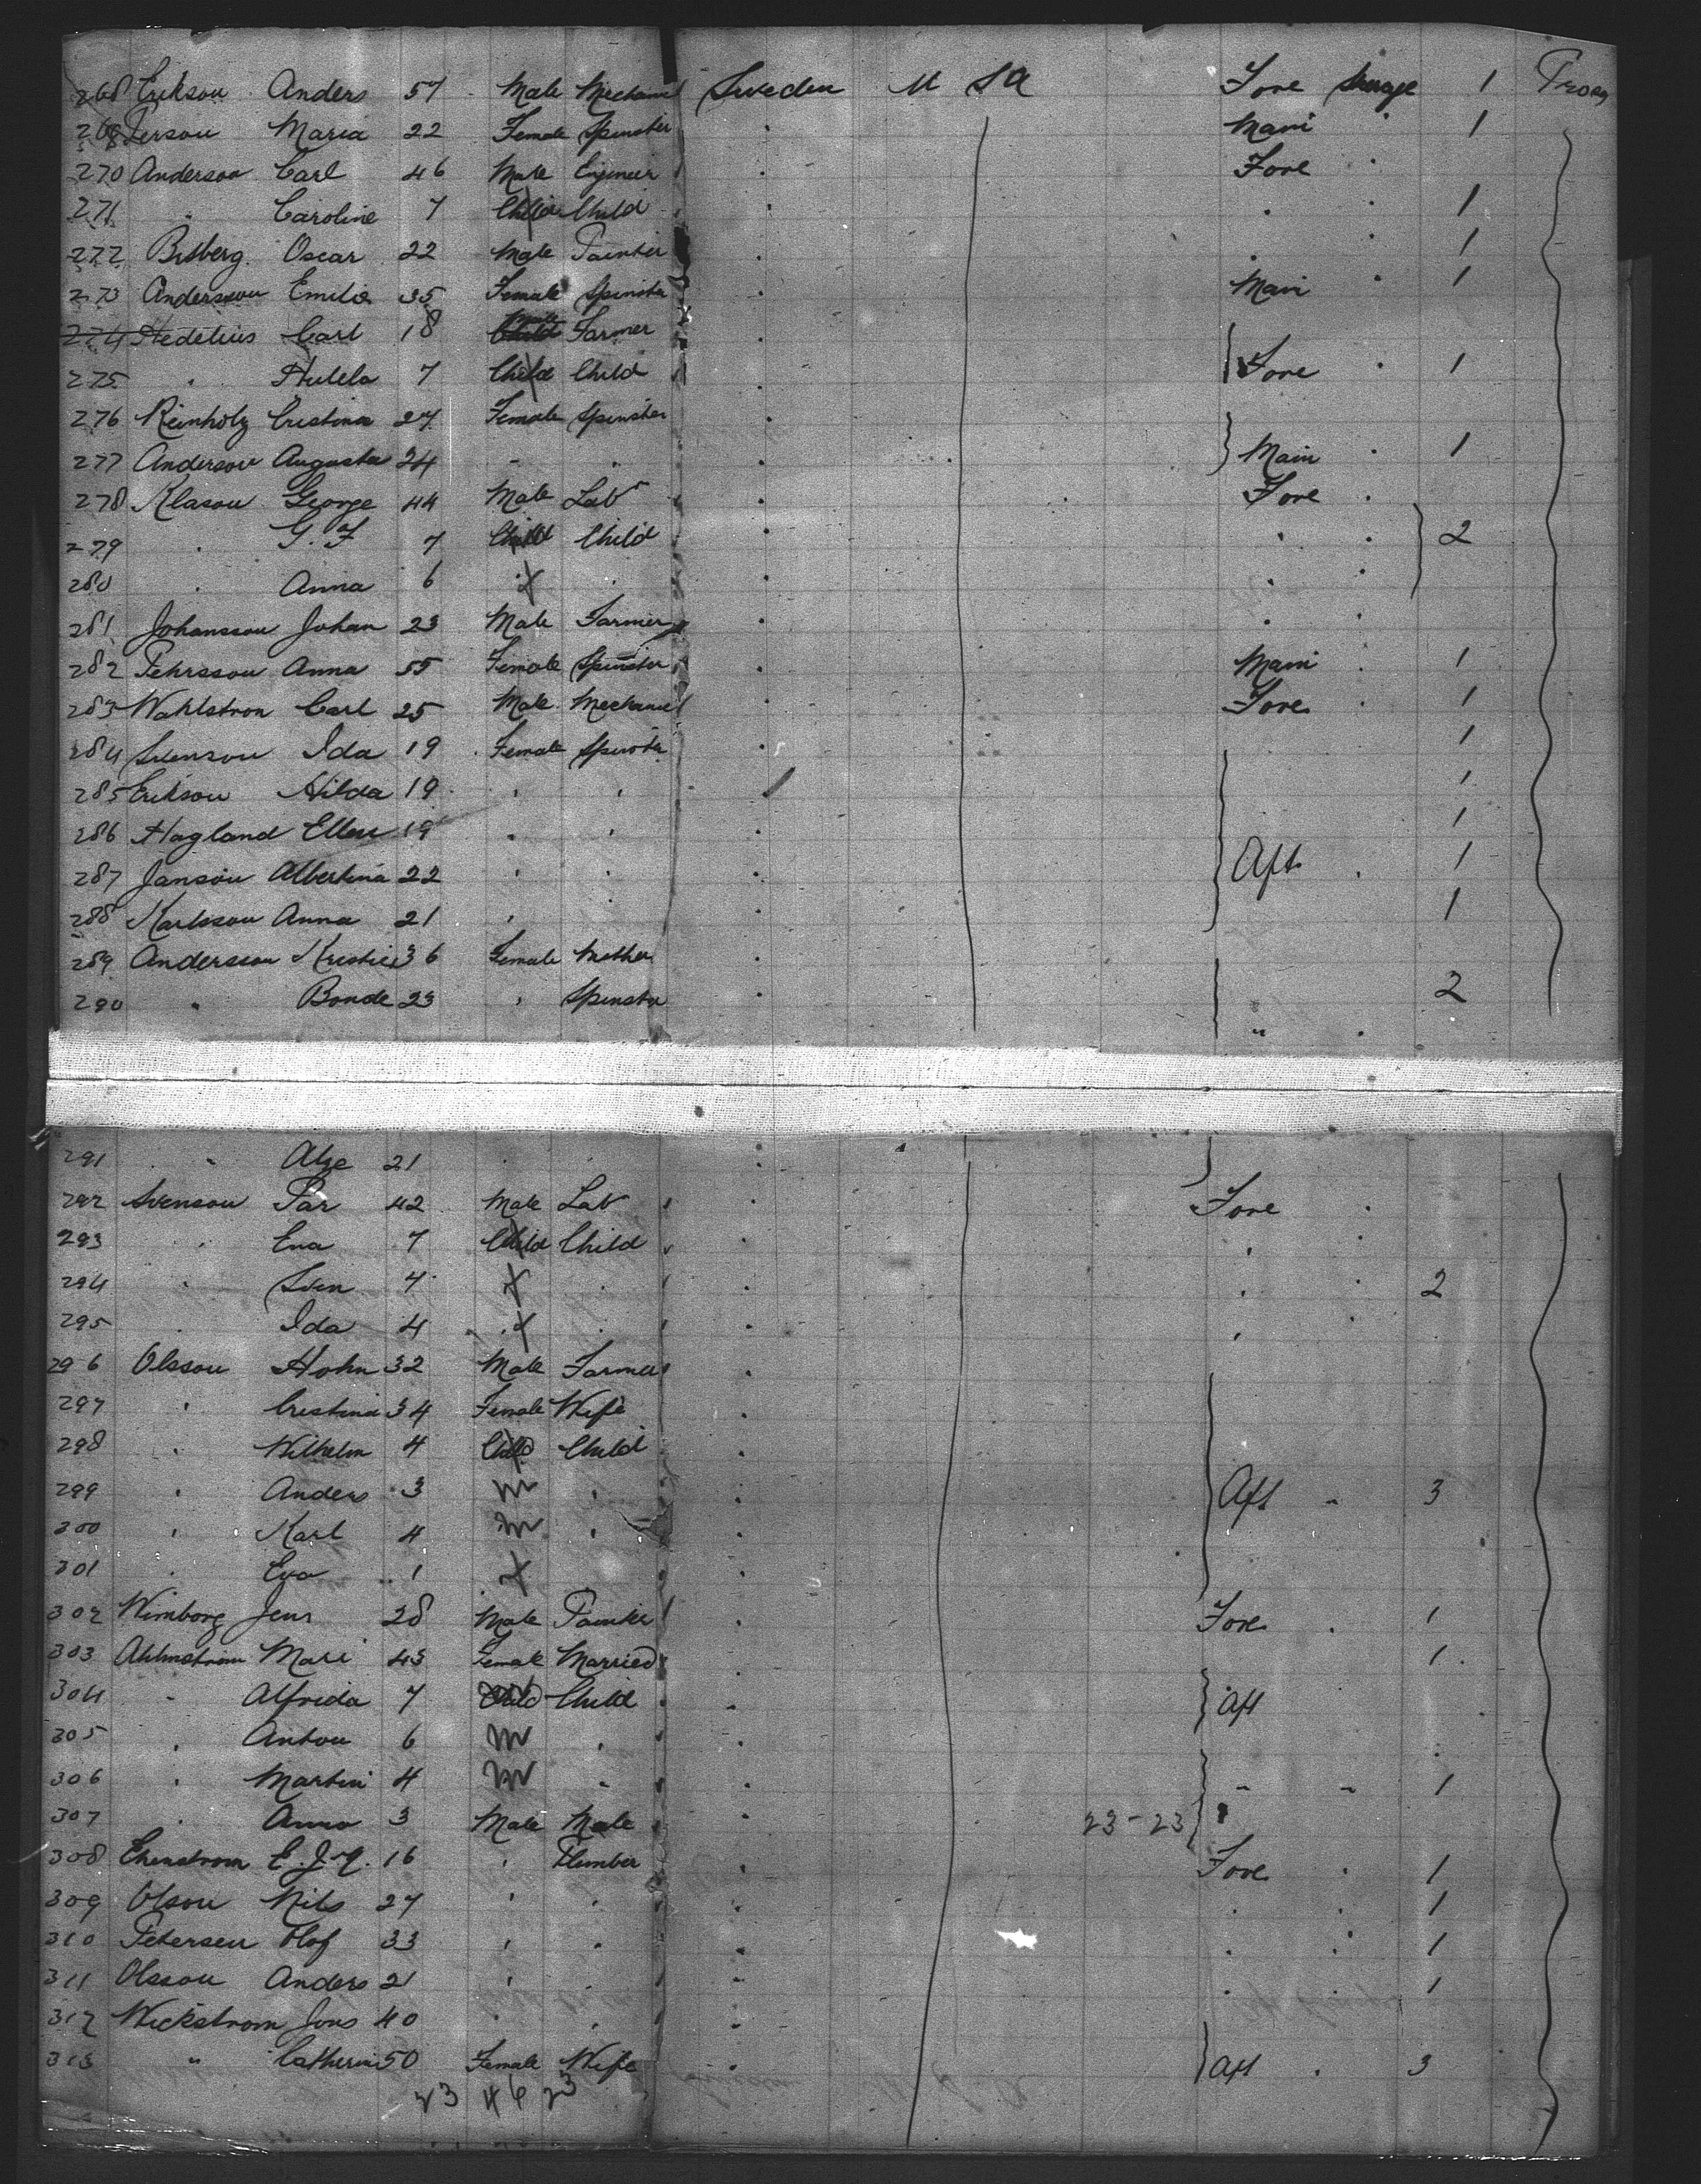 268 Erikson Anders 57 Male Mechanic Sweden U S A Fore Steerage 1
269 Person Maria 22 Female Spinster Main " 1
270 Anderson Carl 46 Male Engineer " Fore "
271 " Caroline 7 Child Child " " " 1
272 Oscar 22 Male Painter " " " 1
273 Andersson Emilie 35 Female Spinster " Main " 1
274 Hedelius Carl 18 Male Farmer "
275 " 7 Child Child " Fore " 1
276 Reinholz Cristina 27 Female Spinster "
277 Anderson Augusta 24 " " " Main " 1
278 Klason George 44 Male Labr " Fore "
279 " G. F 7 Child Child " " " 2
280 " Anna 6 " " " " "
281 Johansson Johan 23 Male Farmer " " "
282 Pehrsson Anna 55 Female Spinster " Main " 1
283 Wahlstron Carl 25 Male Mechanic " Fore " 1
284 Svenson Ida 19 Female Spinster " 1
285 Erikson Hilda 19 " " " 1
286 Hagland Ellen 19 " " " 1
287 Janson Albertina 22 " " " Aft " 1
288 Karlsson Anna 21 " " " 1
289 Andersson 36 Female Mother "
290 " Bonde 23 " Spinster " 2
" "
291 " 21 " " "
292 Svenson Par 42 Male Lab " Fore "
293 " Eva 7 Child Child " " "
294 " Sven 4 " " " " " 2
295 " Ida 4 " " " " "
296 Olsson John 32 Male Farmer "
297 " Cristina 34 Female Wife "
298 " Wilhelm 4 Child Child "
299 " Anders 3 m " " Aft " 3
300 " Karl 4 m " "
301 " Eva 1
302 Wimborg Jens 28 Male Painter " Fore " 1
303 Ahlmstrom Mari 43 Female Married " 1
304 " Alfrida 7 Child Child " Aft
305 " Anton 6 m " "
306 " Martin 4 m " " " " 1
307 " Anna 3 Male Male " 23-23
308 E. J. 16 " Plumber " Fore " 1
309 Olson Nils 27 " " " " 1
310 Petersen Olof 33 " " " " " 1
311 Olsson Anders 21 " " " " " 1
312 Wickstrom Jons 40 " " "
313 " Catherin 50 Female Wife " Aft " 3
23 46 23